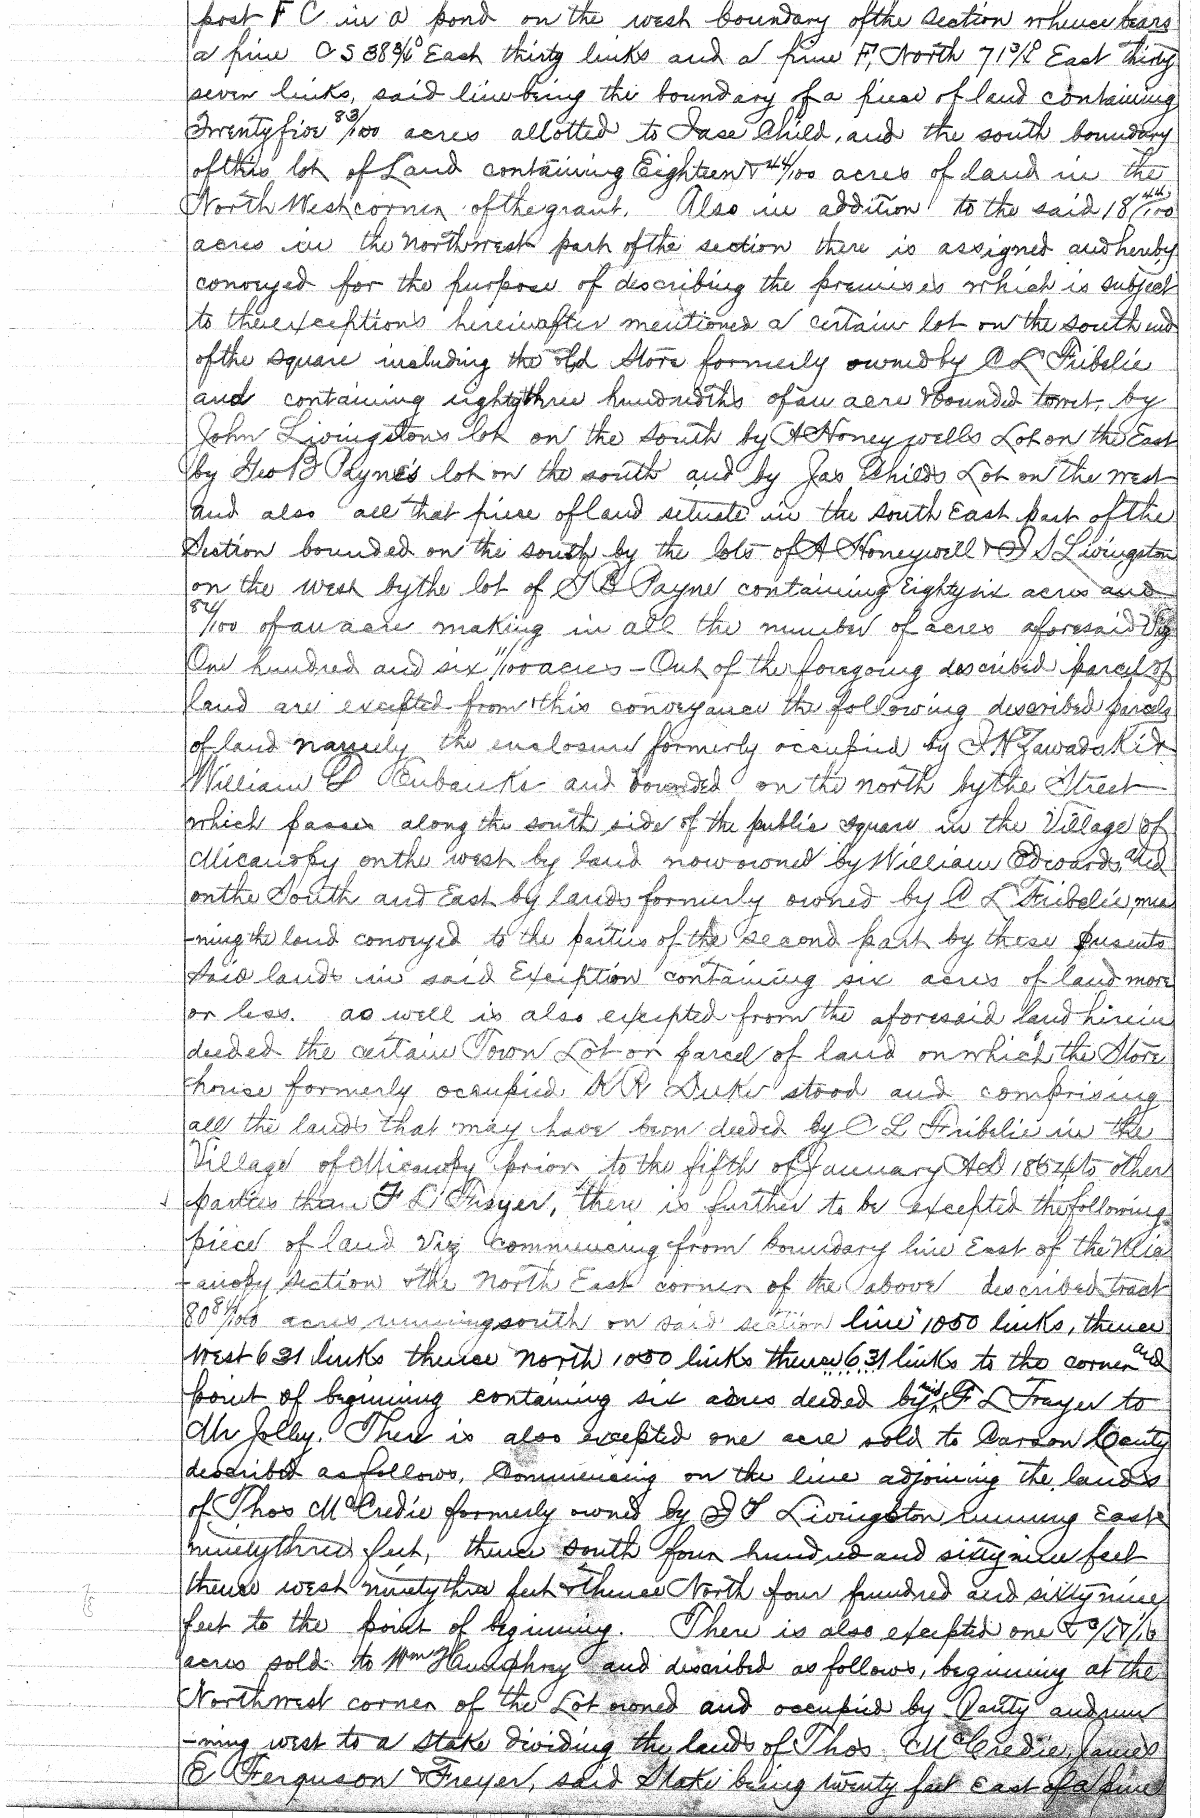 post F C in a pond on the west boundary of the section whence bears
a pine C S 38 3/6° East thirty links and a pine F, North East thirty
seven links, said line being the boundary of a piece of land containing
Twenty five 83/100 acres allotted to Jase Child, and the south boundary
of this lot of Land containing Eighteen & 44/100 acres of land in the
North West corner of the grant. Also in addition to the said 18 44/100
acres in the northwest part of the section there is assigned and hereby
conveyed for the purpose of describing the premises which is subject
to the exceptions hereinafter mentioned a certain lot on the south end
of the square including the old Store formerly owned by C L Fribelie
and containing eighty three hundredths of an acre & bounded towit, by
John Livingstons lot on the south by A Honeywells Lot on the East
by Geo B Paynes lot on the south and by Jas Childs Lot on the west
and also all that piece of land situate in the south East part of the
Section bounded on the south by the lots of A Honeywell & J S Livingston
on the west by the lot of G B Payne containing Eighty six acres and
84/100 of an acre making in all the number of acres aforesaid Viz
One hundred and six 11/100 acres - Out of the foregoing described parcel of
land are excepted from this conveyance the following described parcels
of land namely the enclosure formerly occupied by J N Zawadski &
William G Eubanks and bounded on the north by the Street
which passes along the south side of the public square in the Village of
Micanopy on the west by land now owned by William Edwards, and
on the South and East by lands formerly owned by C L Fribelie, mea
-ning the land conveyed to the parties of the second part by these presents
Said lands in said Exception containing six acres of land more
or less. as well is also excepted from the aforesaid land herein
deeded the certain Town Lot or parcel of land on which the Store
house formerly occupied K R Duke stood and comprising
all the lands that may have been deeded by C L Fribelie in the
Village of Micanopy prior to the fifth of January AD to other
parties than F L Frayer, there is further to be excepted the following
piece of land Viz commencing from boundary line East of the Mic
-anopy section & the North East corner of the above described tract
80 84/100 acres running south on said section line 1050 links, thence
west 631 links thence north 1050 links thence 631 links to the corner and
point of beginning containing six acres deeded by said F L Frayer to
Mr Jolley. There is also excepted one acre sold to Carson Canty
described as follows, Commencing on the line adjoining the lands
of Thos McCredie formerly owned by J S Livingston running East
ninety three feet, thence south four hundred and sixty nine feet
thence west ninety three feet & thence North four hundred and sixty nine
feet to the point of beginning. There is also excepted one
acres sold to Wm Humphrey and described as follows, beginning at the
Northwest corner of the Lot owned and occupied by Canty and run
-ning west to a stake dividing the lands of Thos McCredie, James
E Ferguson & Freyer, said Stake being twenty feet East of a pine